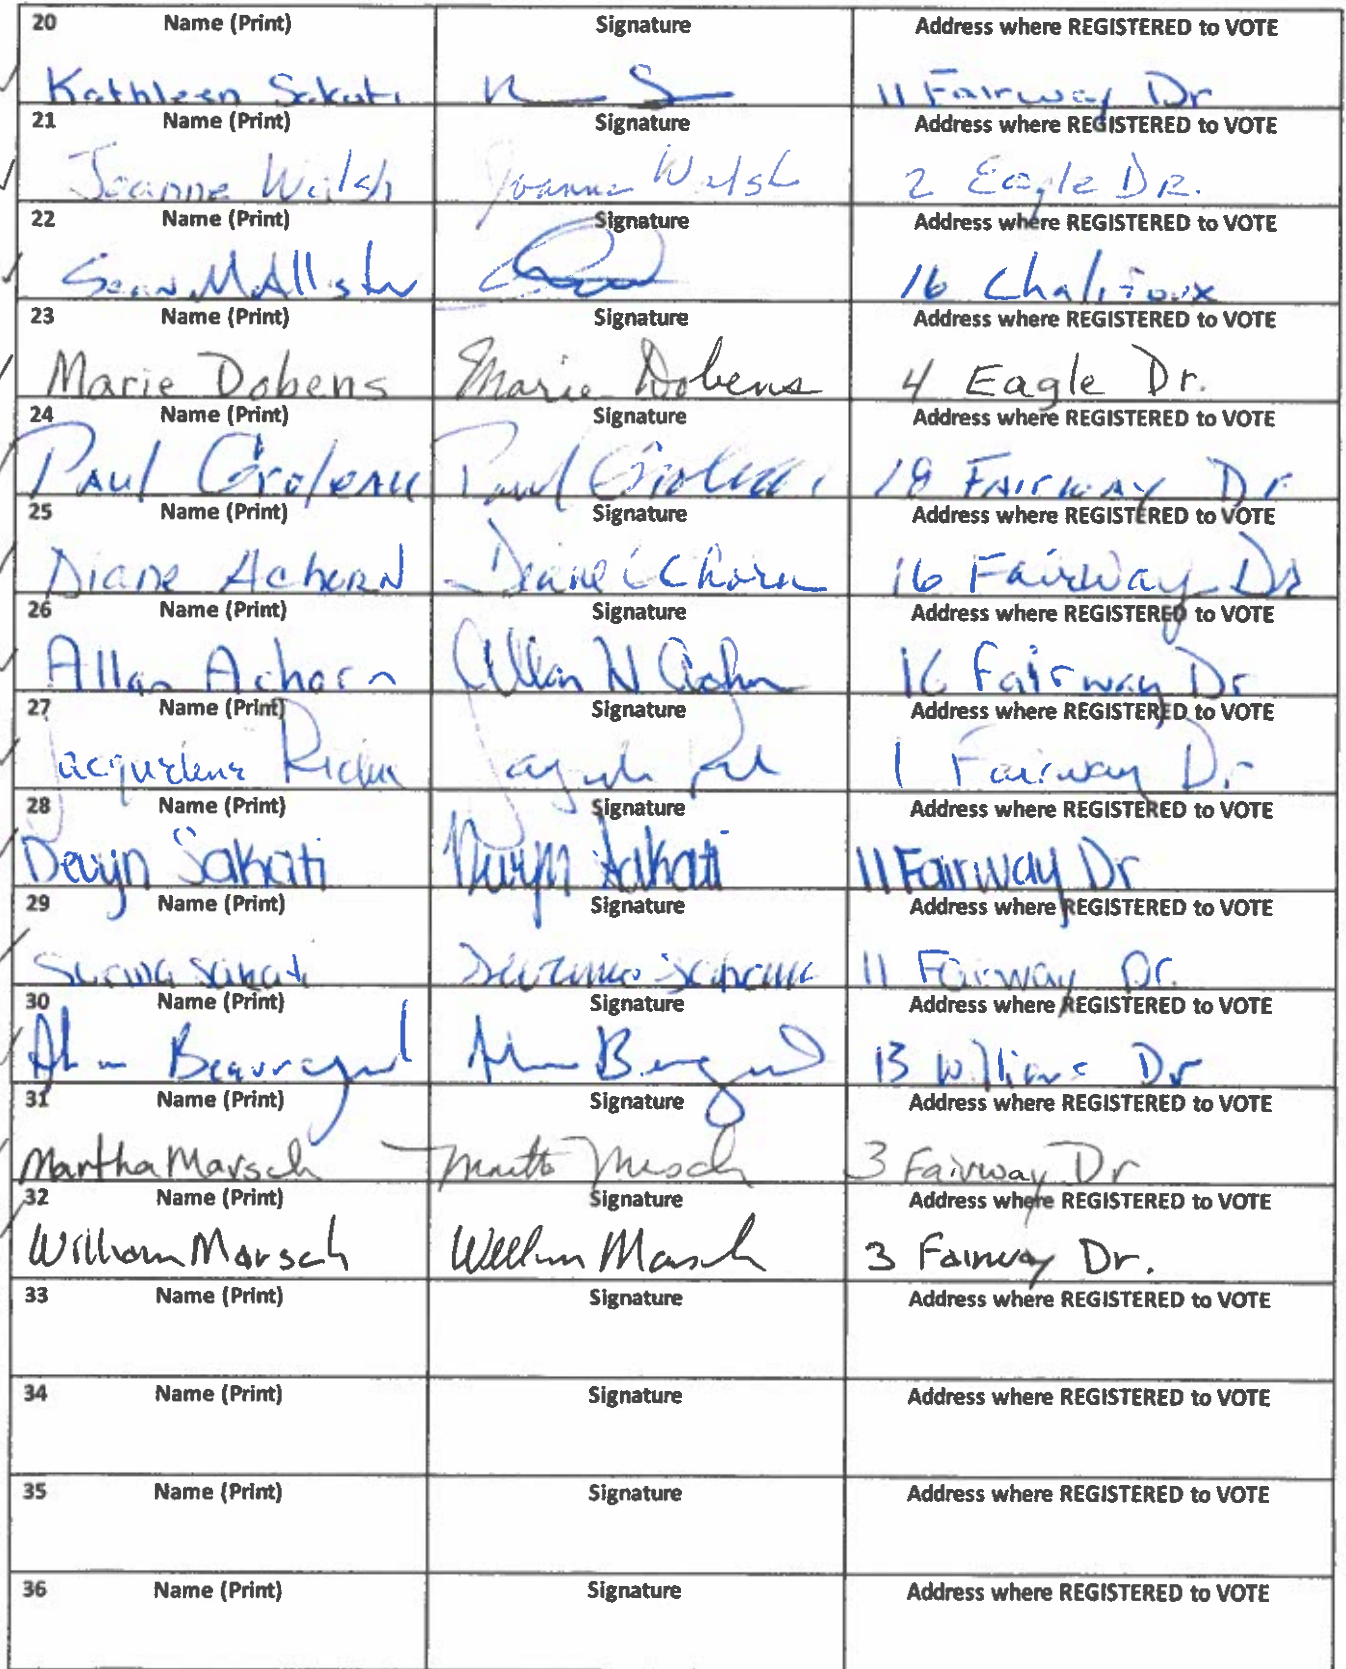 20 Name (Print) Signature Address where REGISTERED to VOTE
Kathleen Sakati K S 11 Fairway Dr
21 Name (Print) Signature Address where REGISTERED to VOTE
Joanne Walsh Joanne Walsh 2 Eagle DR.
22 Name (Print) Signature Address where REGISTERED to VOTE
Sean McAllister 16 Chalifoux
23 Name (Print) Signature Address where REGISTERED to VOTE
Marie Dobens Marie Dobens 4 Eagle Dr.
24 Name (Print) Signature Address where REGISTERED to VOTE
Paul Groleau Paul Groleau 18 Fairway Dr
25 Name (Print) Signature Address where REGISTERED to VOTE
Diane Achorn Diane Achorn 16 Fairway Dr
26 Name (Print) Signature Address where REGISTERED to VOTE
Allan Achorn Allan W Achorn 16 Fairway Dr
27 Name (Print) Signature Address where REGISTERED to VOTE
Jacquelene 1 Fairway Dr
28 Name (Print) Signature Address where REGISTERED to VOTE
Devyn Sakati Devyn Sakati 11 Fairway Dr
29 Name (Print) Signature Address where REGISTERED to VOTE
Sakati 11 Fairway Dr.
30 Name (Print) Signature Address where REGISTERED to VOTE
Beauregard 13 Williams Dr
31 Name (Print) Signature Address where REGISTERED to VOTE
Martha Marsch Martha Marsch 3 Fairway Dr
32 Name (Print) Signature Address where REGISTERED to VOTE
William Marsch William Marsch 3 Fairway Dr.
33 Name (Print) Signature Address where REGISTERED to VOTE
34 Name (Print) Signature Address where REGISTERED to VOTE
35 Name (Print) Signature Address where REGISTERED to VOTE
36 Name (Print) Signature Address where REGISTERED to VOTE